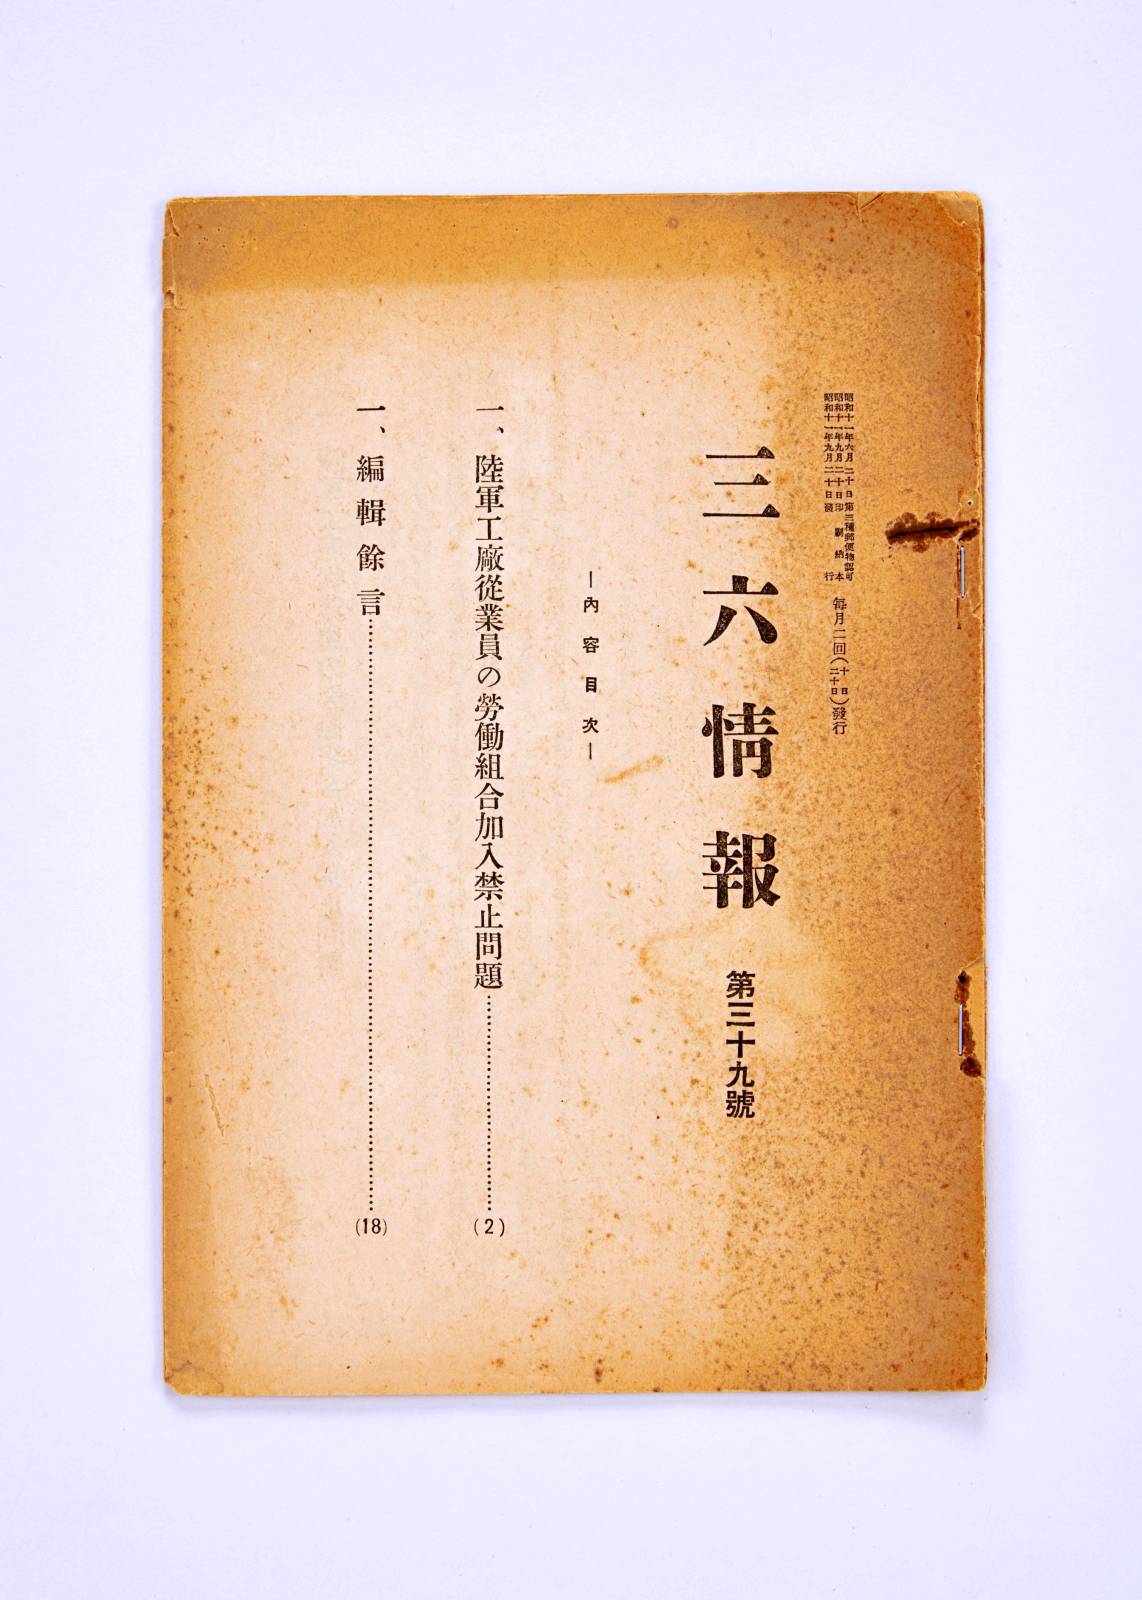 昭和十一年六月二十日第三種郵便物認可
昭和十一年九月二十日印刷納本
昭和十一年九月二十日發行
每月二回(十日二十日)發行
三六情報
第三十九號
―內容目次―
一、陸軍工廠從業員の勞働組合加入禁止問題……(2)
一、編輯餘言……(18)